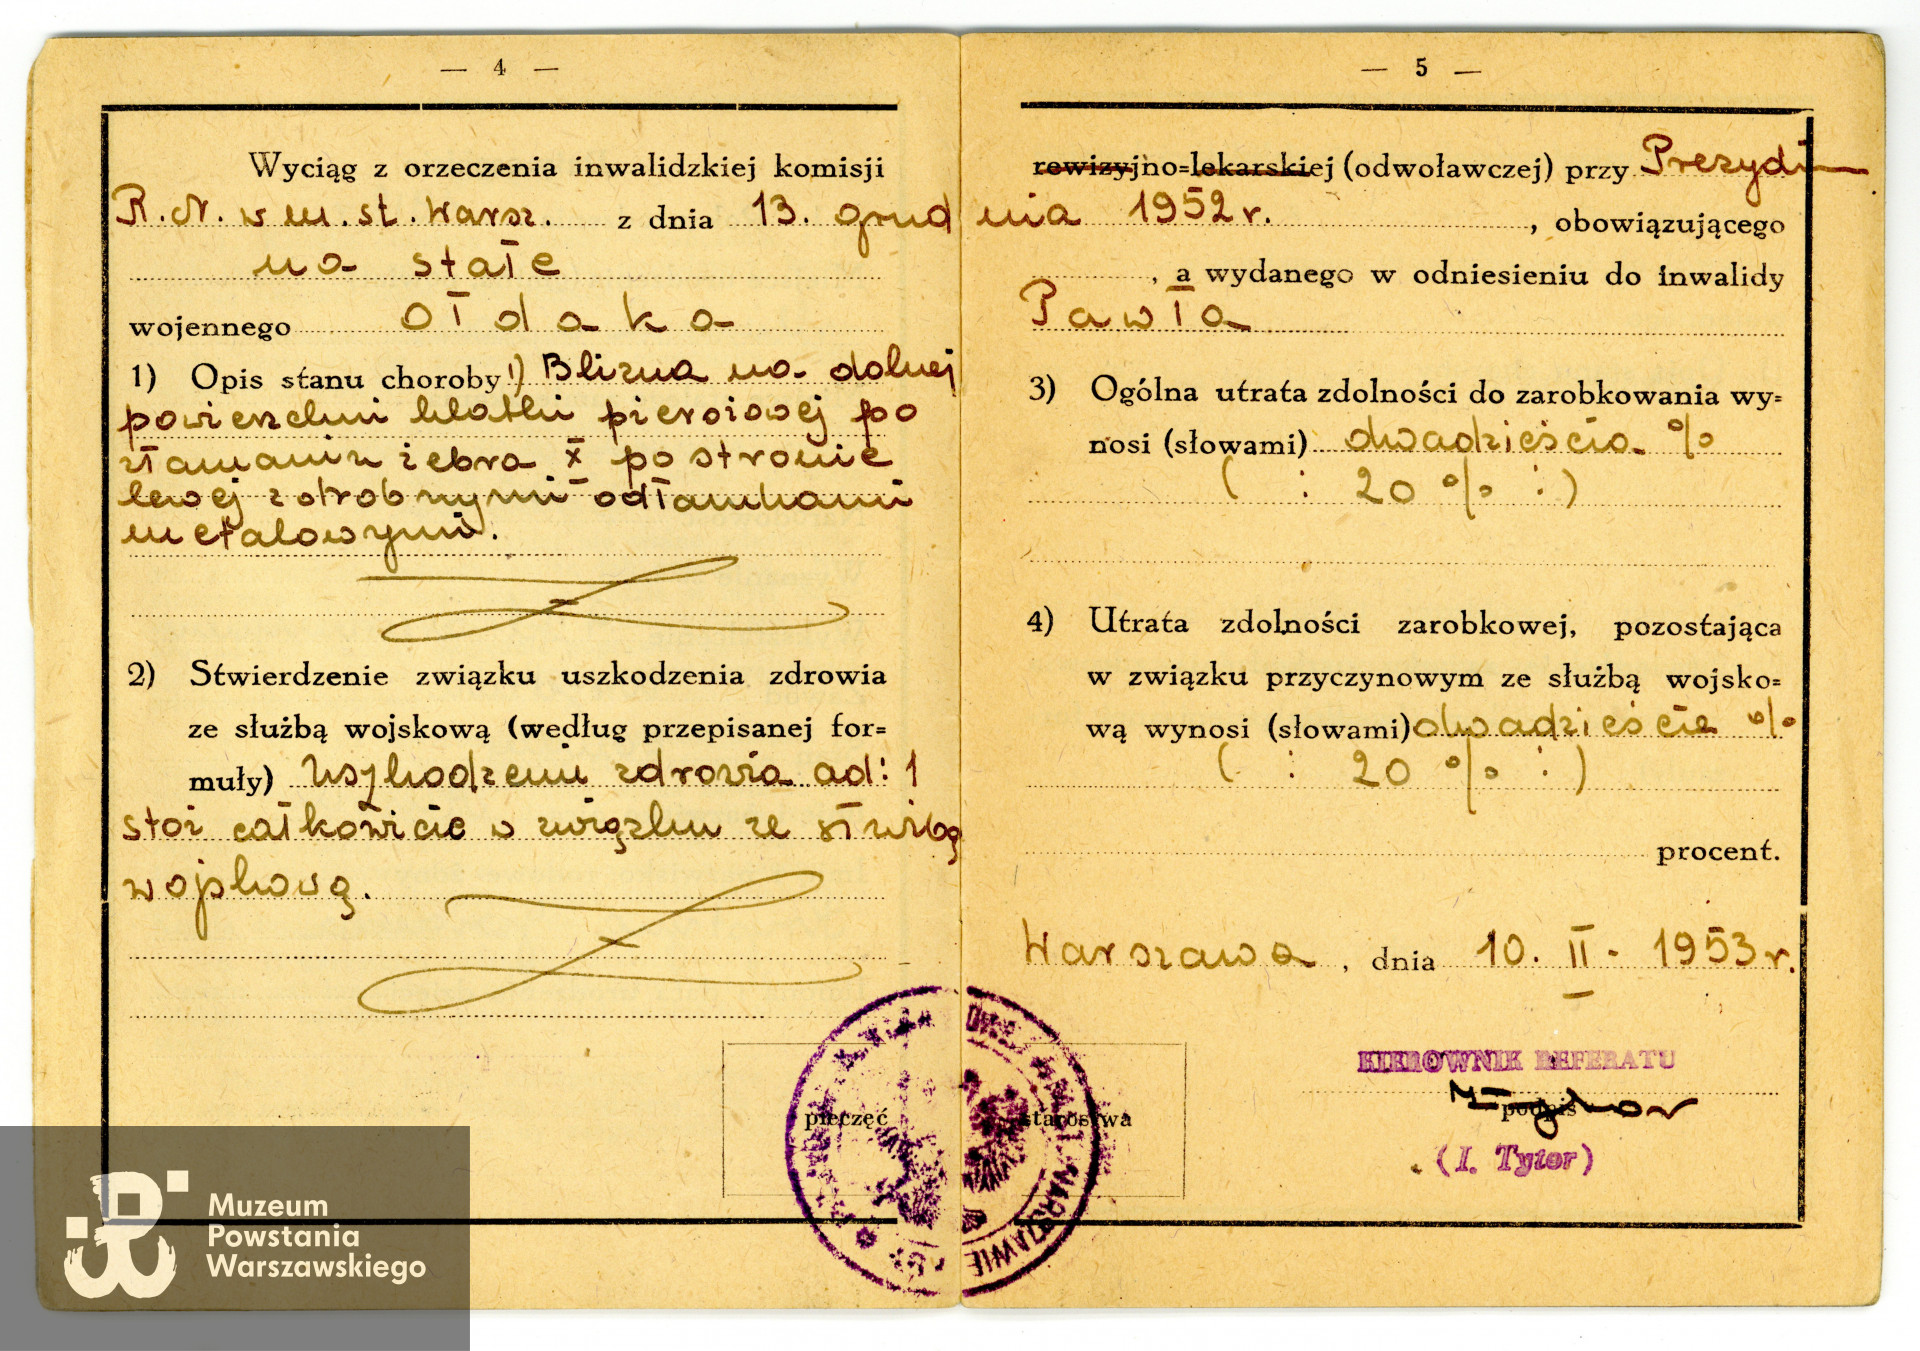 — 4 —
Wyciąg z orzeczenia inwalidzkiej komisji
R. N. w m. st. Warsz. z dnia 13. grud
na stałe
wojennego Ołdaka
1) Opis stanu choroby 1) Blizna na dolnej
powierzchni klatki piersiowej po
złamaniu żebra X po stronie
lewej z drobnymi odłamkami
metalowymi.
2) Stwierdzenie związku uszkodzenia zdrowia
ze służbą wojskową (według przepisanej for=
muły) Uszkodzenie zdrowia ad: 1
stoi całkowicie w związku ze służbą
wojskową.
pieczęć
— 5 —
rewizyjno=lekarskiej (odwoławczej) przy Prezydium
nia 1952 r. , obowiązującego
, a wydanego w odniesieniu do inwalidy
Pawła
3) Ogólna utrata zdolności do zarobkowania wy=
nosi (słowami) dwadzieścia %
( : 20 % : )
4) Utrata zdolności zarobkowej, pozostająca
w związku przyczynowym ze służbą wojsko=
wą wynosi (słowami) dwadzieście %
( : 20 % : )
procent.
Warszawa, dnia 10. II - 1953 r.
KIEROWNIK REFERATU
podpis
(I. Tylor)
starostwa
WARSZAWIE
Muzeum
Powstania
Warszawskiego